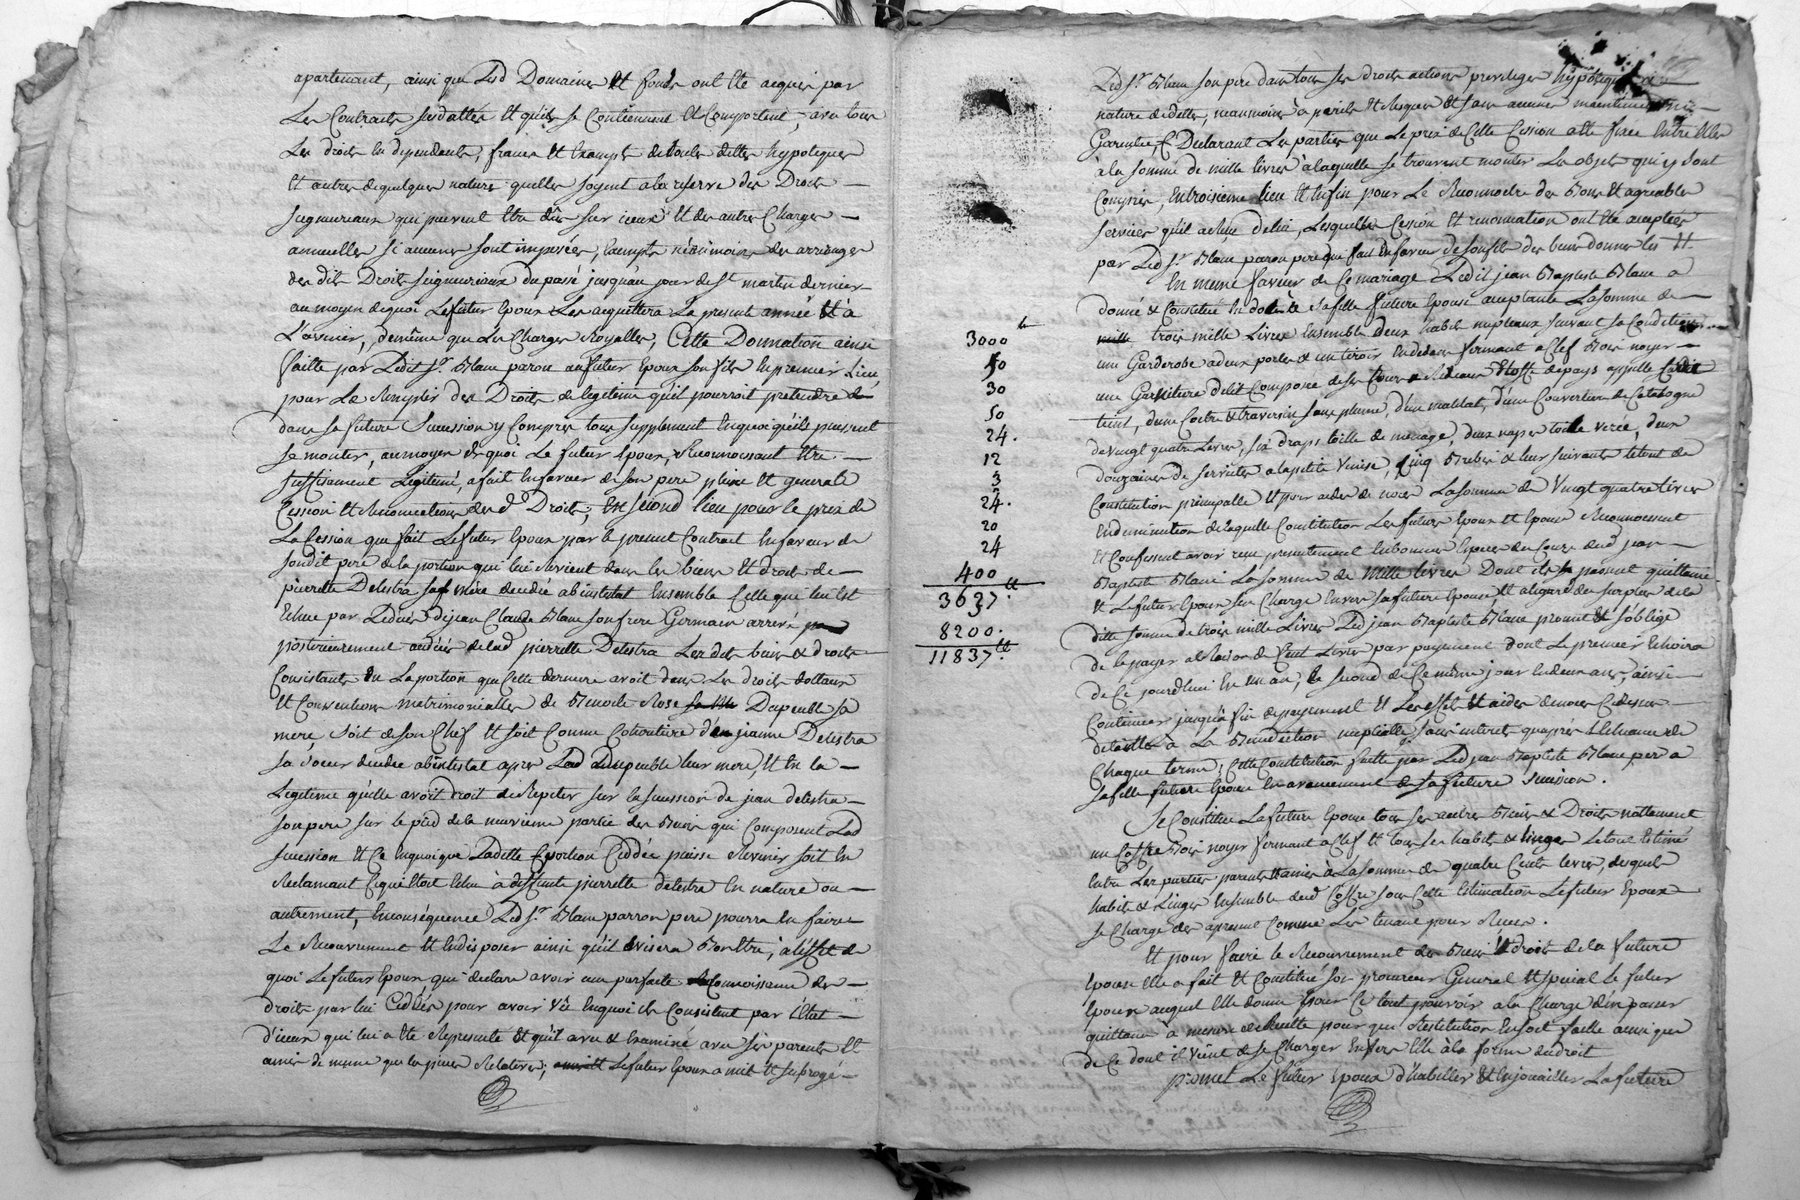 apartenant, ainsi que Lesd Domaines Et fonds ont Eté acquis par
Les Contracts susdattés Et qu'ils se Contiennent Et Comportent, avec tous
Les droits En dependants, francs Et Exempts de toutes dettes hypoteques
Et autres de quelques nature quelles soyent a la reserve des Droits
seigneuriaux qui peuvent Etre dûs sur iceux Et des autres Charges
annuelles si aucunes sont imposées, Exempts néanmoins des arrérages
des dits Droits seigneuriaux du passé jusqu'au jour de St martin dernier
au moyen de quoi Le futur Epoux Les acquittera La presente année Et à
L'avenir, de même que Les Charges Royalles, Cette Donnation ainsi
faitte par Ledit Sr. Blanc paron au futur Epoux son fils En premier Lieu
pour Le Remplir des Droits de legitime qu'il pourroit pretendre
dans sa future Succession y Compris tous supplement En quoi qu'ils puissent
se monter, au moyen de quoi Le futur Epoux, Reconnoissant Etre
suffisament Legitimé, a fait En faveur de son pere pleine Et generale
Cession Et Renonciation desd Droits, En second lieu pour le prix de
La Cession que fait Le futur Epoux par le present Contract En faveur de
son dit pere de la portion qui lui Revient dans les biens Et droits de
pierrette Delestra sa mère decedée abintestat Ensemble Celle qui lui Est
Echue par Le deces de jean Claude Blanc son frere Germain arrivé
posterieurement au décès de lad pierrette Delestra Lesdits biens & droits
Consistants En La portion que Cette derniere avoit dans Les droits dottaux
Et Conventions matrimonialles de Benoite Rose Dupeuble sa
mere, soit de son Chef Et soit Comme Cohéritière d'en jeanne Delestra
sa soeur decedée abintestat apres Lad Dupeuble leur mere, Et En la
Legitime qu'elle avoit droit de Repeter sur la succession de jean delestra
son pere sur le pied de la neuvieme partie des Biens qui Composent Lad
succession Et Ce En quoi que Laditte portion Ceddée puisse Revenir soit En
Reclamant Ce qui Etoit Echu à deffunte pierrette delestre En nature ou
autrement, En conséquence Led Sr. Blanc parron pere pourra En faire
Le Recouvrement Et En disposer ainsi qu'il avisera Bon Etre, à L'effet de
quoi Le futur Epoux qui declare avoir une parfaite Connoissance des
droits par lui Ceddés pour avoir vû En quoi ils Consistent par L'Etat
d'iceux qui lui a Eté Representé Et qu'il a vu & Examiné avec ses parents Et
amis de meme que les pieces Relatives, Le futur Epoux a mis Et subrogé
Led Sr. Blanc son pere dans tous ses droits actions privileges hypoteques
nature de dettes, neanmoins à perils Et Risques Et sans aucune maintenue ni
Garentie, Et Declarent Les parties que Le prix de Cette Cession a Eté fixé Entre Elles
à la somme de mille livres à laquelle se trouvent monter Les objets qui y sont
Compris, En troisieme lieu Et Enfin pour Le Reconnoitre des Bons Et agreables
services qu'il a Reçu de lui, Lesquelles Cession Et renonciation ont Eté acceptées
par Led Sr. Blanc paron pere
En meme faveur de Ce mariage Ledit jean Baptiste Blanc a
donné & Constitué En dot à sa fille future Epouse acceptante La somme de
trois mille Livres Ensemble deux habits nuptiaux suivant sa Condition
3000 lt
une Garderobe a deux portes & un tiroir En dedans fermant a Clef Bois noyer
50
une Garniture de lit Composée de ses Cour & Rideaux Etoffe de pays appellé
30
teint, d'une Coetre & traversin sans plume, d'un mattelat, d'une Couverture de Catalogne
50
de vingt quatre Livres, six draps toille de menage, deux napes toille , deux
24.
douzaines de serviettes a la petite Venise, Cinq Brebis & leur suivants le tout de
12
3
Constitution principalle Et pour aides de noces La somme de Vingt quatre livres
24.
En diminution de laquelle Constitution Les futurs Epoux Et Epouse Reconnoissent
20
Et Confessent avoir reçu presentement En bonnes Especes de Cours dud jean
24
Baptiste Blanc La somme de Mille Livres Dont ils se passent quittance
400
& Le futur Epoux s'en Charge Envers sa future Epouse Et a l'egard du surplus de la
3637 lt
ditte somme de trois mille Livres Led jean Baptiste Blanc promet & s'oblige
8200.
de le payer a la Raison de Cent Livres par payement dont Le premier Echoira
11837 lt
de Ce jourdhui En un an, le second de Ce même jour En deux ans, ainsi
Continuer jusqu'a fin de payement Et Les Effets & aides de noces Ci dessus
détaillés à La Benediction nuptialle sans interet qu'apres L'Echeance de
Chaque terme, Cette Constitution faitte par Led jean Baptiste Blanc pere a
sa fille future Epouse En avancement de sa future succession.
Se Constitue La future Epouse tous ses autres Biens & Droits nottament
un Coffre Bois noyer fermant a Clef Et tous ses habits & linges Le tout Estimé
Entre Les parties parents & amis à La somme de quatre Cents livres, desquels
habits & Linges Ensemble dud Coffre sous Cette Estimation Le futur Epoux
se Charge des apresent Comme Les tenant pour Reçus.
Et pour faire le Recouvrement des Biens & droits de la future
Epouse Elle a fait Et Constitué son procureur General Et special le futur
Epoux auquel Elle donne pour Ce tout pouvoir a la Charge d'en passer
quittance à mesure de Recette pour que Restitution En soit faitte ainsi que
de Ce dont il vient de se Charger Envers Elle à la forme du droit
Promet Le futur Epoux d'habiller & Enjouailler La future